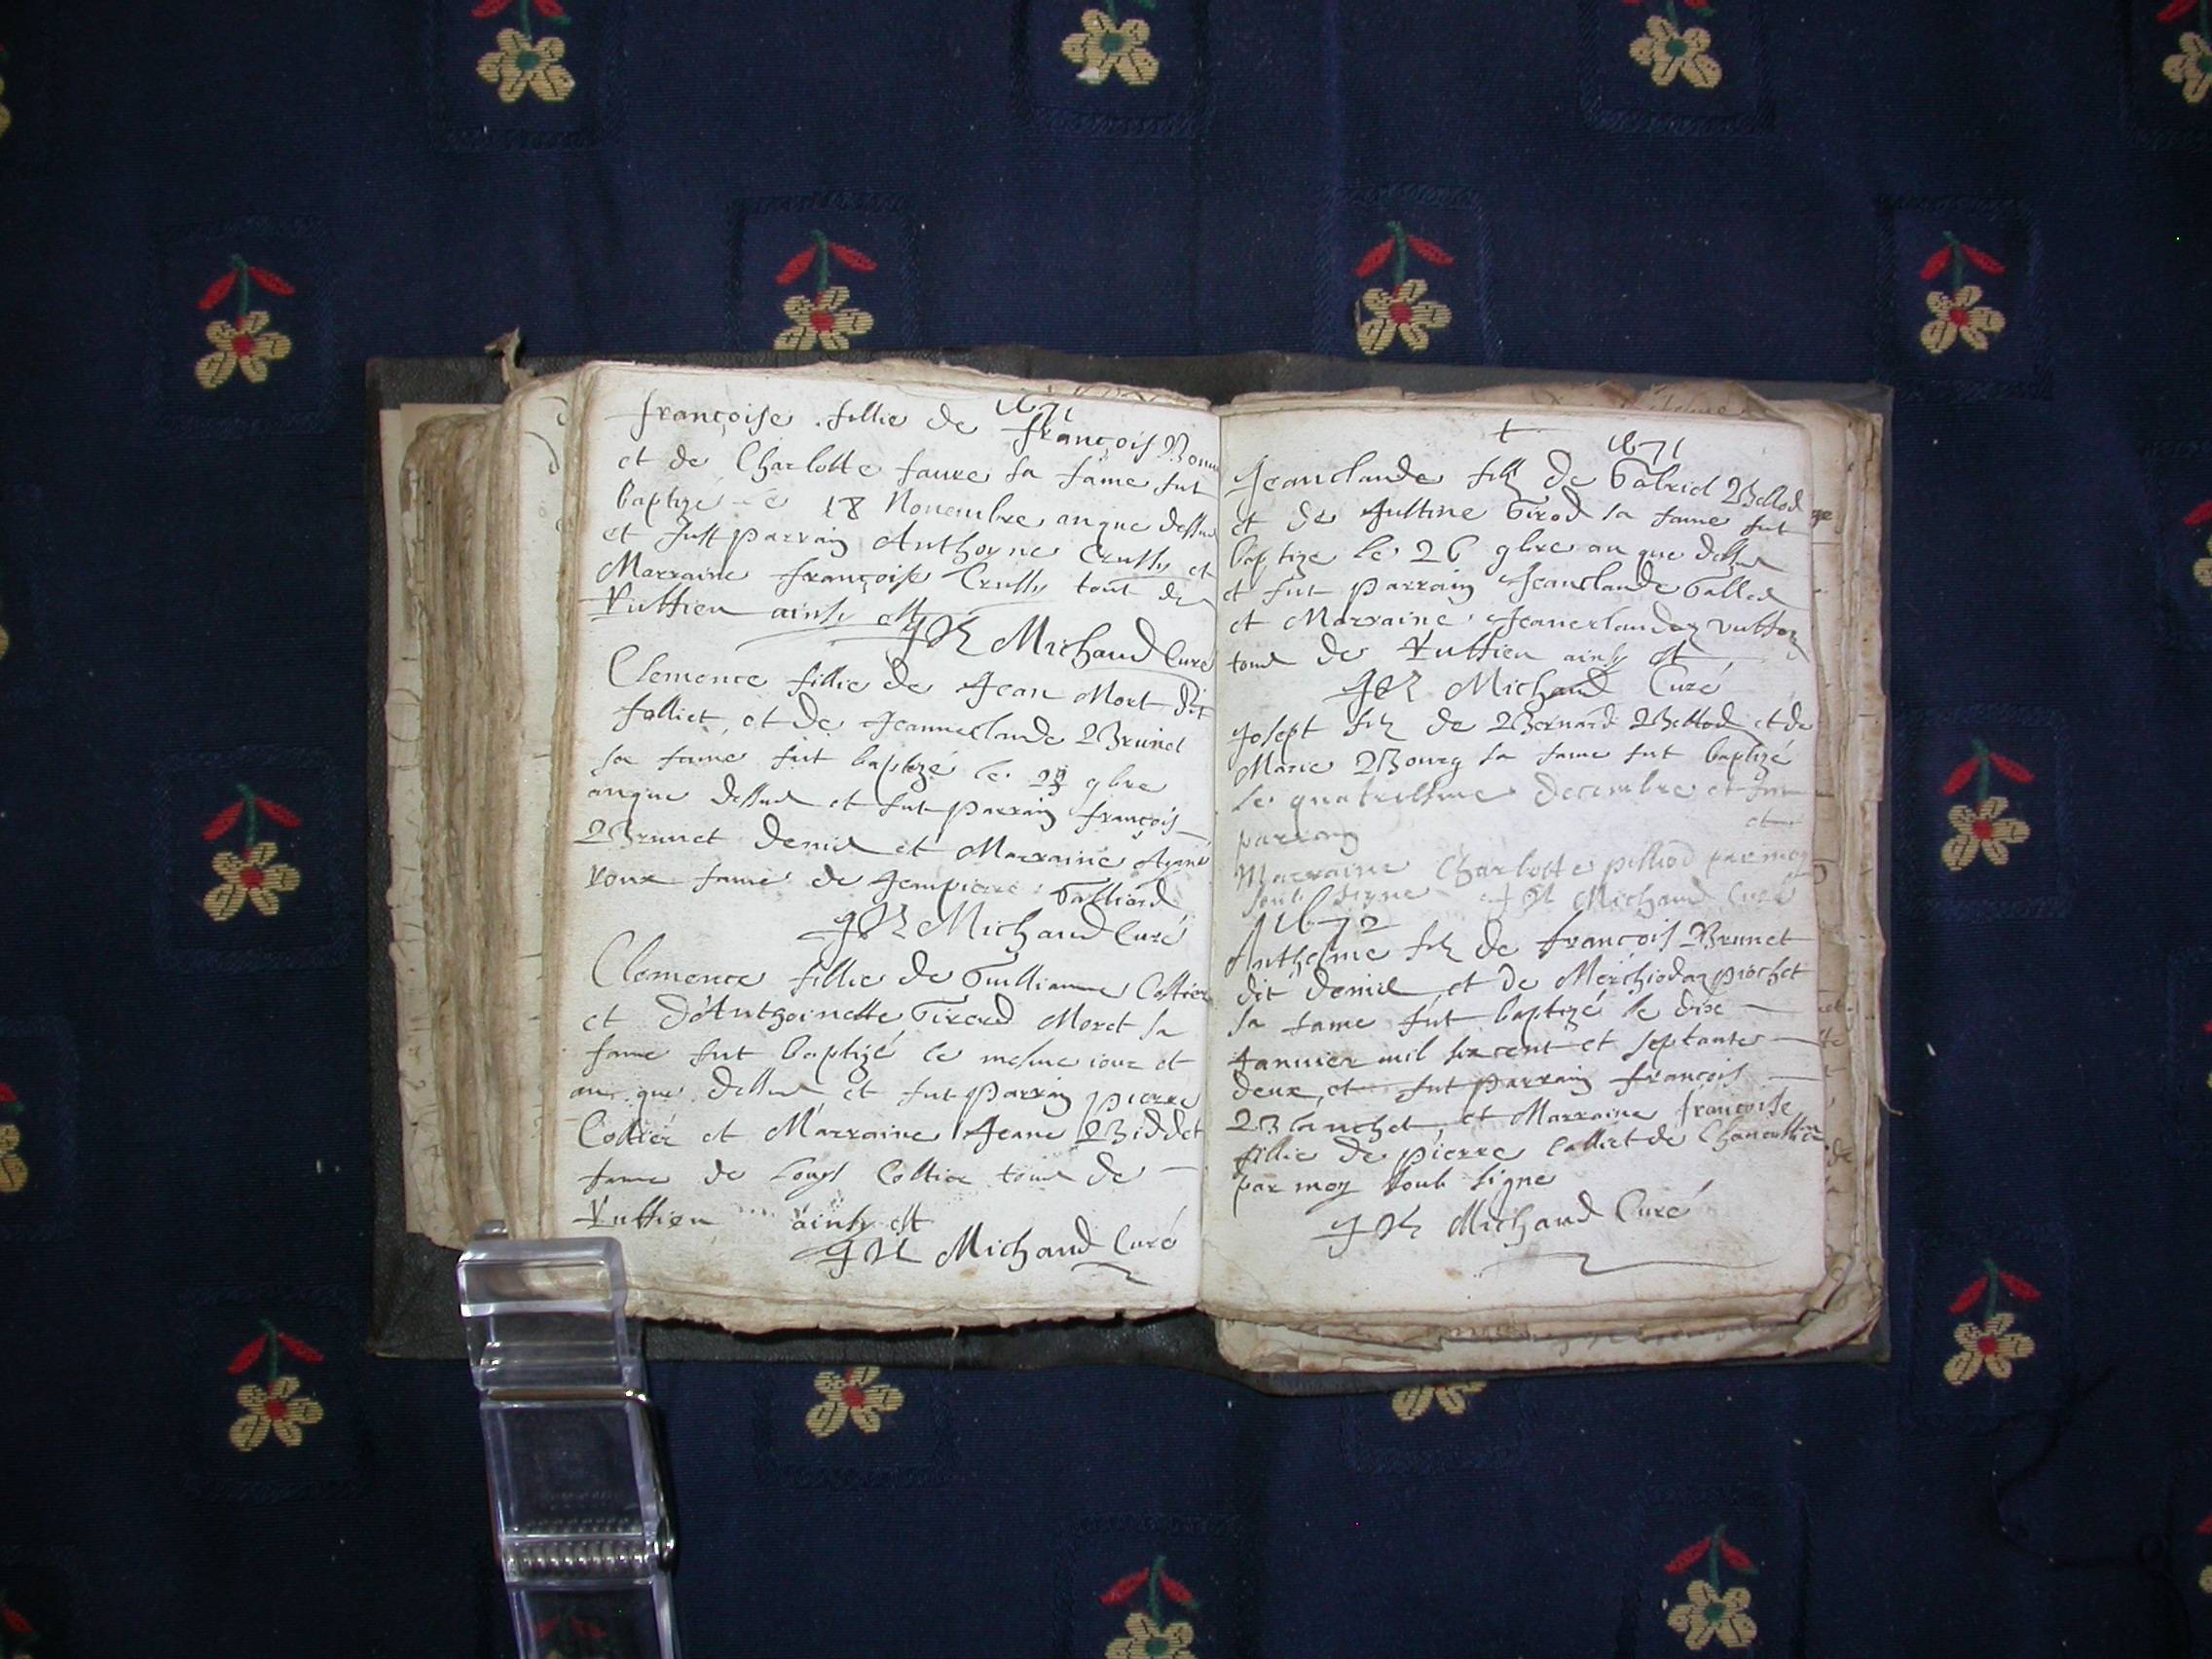 1671
françoise fillie de françois
et de Charlotte faure sa fame fut
baptizé le 18 Novembre anque dessus
et fust parrain Anthoyne Crussy et
Marraine françoise Crussy tout de
Vuttien ainsy est
Michaud Curé
Clemence fillie de Jean Mort dit
folliet et de Jeanneclaude Brunet
sa fame fut baptizé le gbre
anque dessus et fut parrain françois
Brunet denis et Marraine
roux fame de Jempierre Galliard
Michaud Curé
Clemence fillie de Guilliaume Cottier
et d'Anthoinette Girerd Moret sa
fame fut baptizé le mesme iour et
an que dessus et fut parrain pierre
Cottier et Marraine Jeane Biddet
fame de Louys Cottier tous de
Vuttien ainsy est
Michaud Curé
1671
Jeanclaude filz de Gabriel Bellod
et de Justine Girod sa fame fut
baptize le 26 gbre an que dessus
et fut parrain Jeanclaude
et Marraine Jeaneclauda
tous de Vuttien ainsy est
Michaud Curé
Josept filz de Bernard Bellod et de
Marie Bourg sa fame fut baptizé
le quatriesme decembre et fut
parrain et
Marraine Charlotte pilliod par moy
soub signe Michaud Curé
1672
Anthelme filz de françois Brunet
dit denis et de piochet
sa fame fut baptizé le dix
Januier mil six cent et septante
deux, et fut parrain françois
Blanchet, et Marraine françoise
fillie de pierre Calliet de
par moy soub signe
Michaud Curé